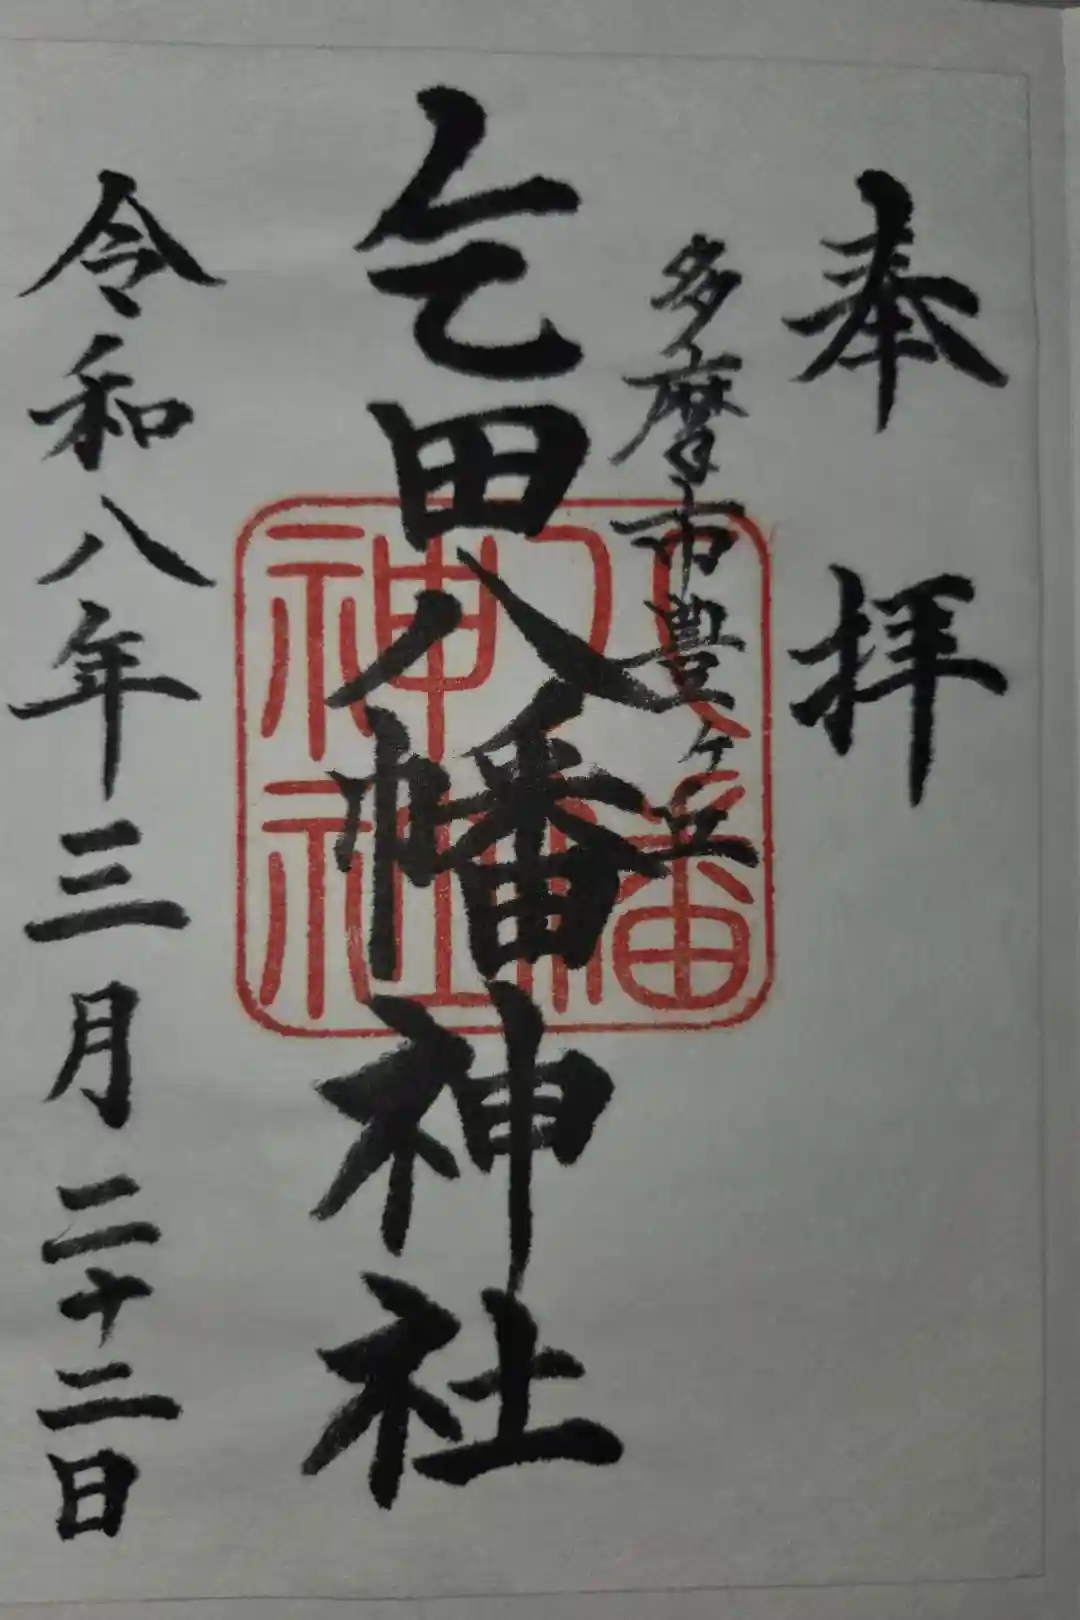 奉拝
多摩市豊ヶ丘
乞田八幡神社
八幡神社
令和八年三月二十二日